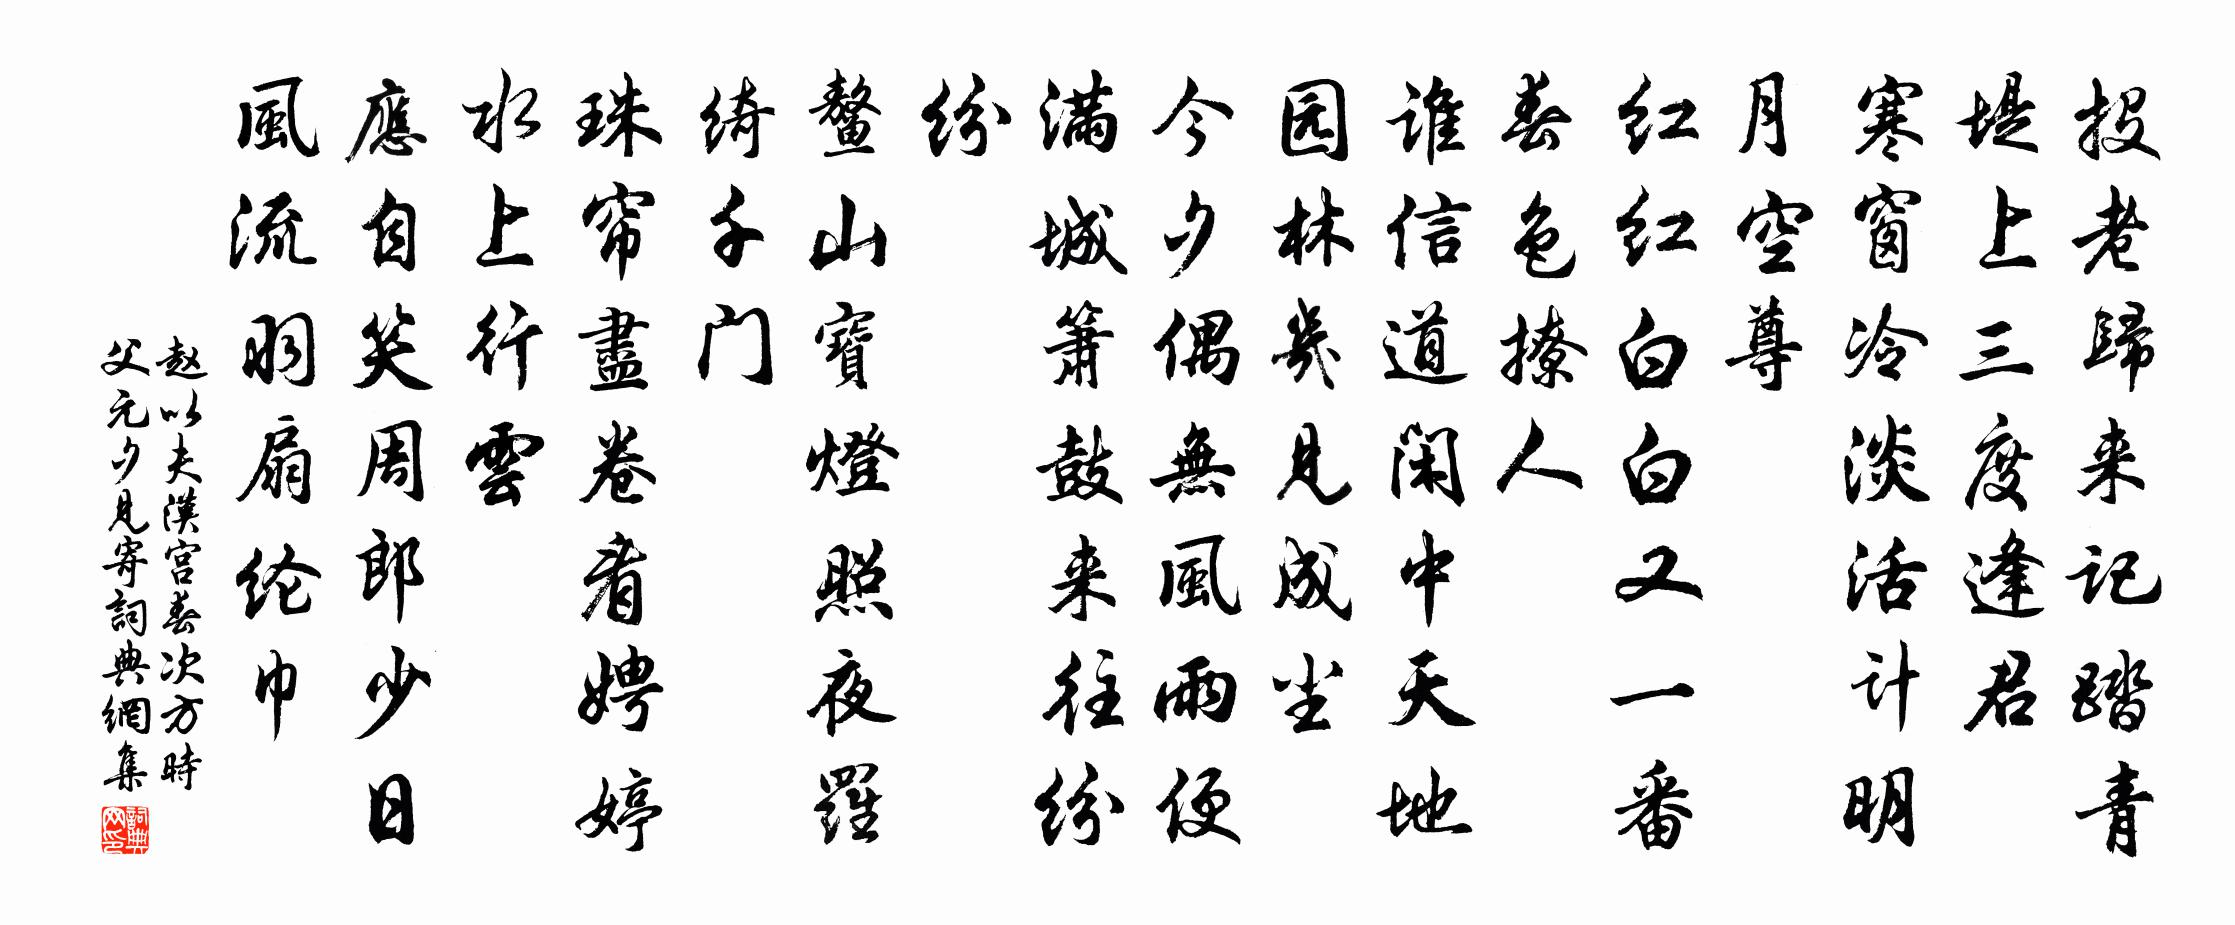 投老歸来記踏青
堤上三度逢君
寒窗冷淡活计明
月空尊
红红白白又一番
春色撩人
谁信道閑中天地
园林幾見成尘
今夕偶無風雨便
满城箫鼓来往纷
纷
鳌山寶燈照夜羅
绮千门
珠帘盡卷看娉婷
水上行雲
應自笑周郎少日
風流羽扇纶巾
赵以夫漢宫春次方時
父元夕見寄詞典網集
詞典網印